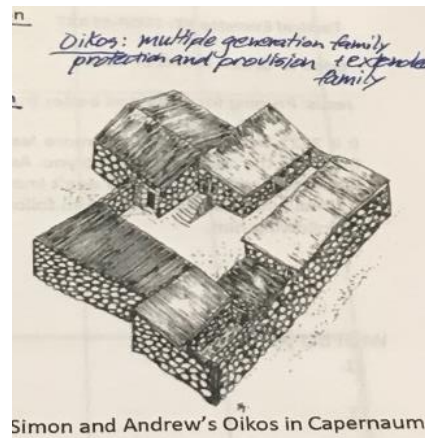 n
Oikos: multiple generation family
protection and provision + extende
family
Simon and Andrew's Oikos in Capernaum